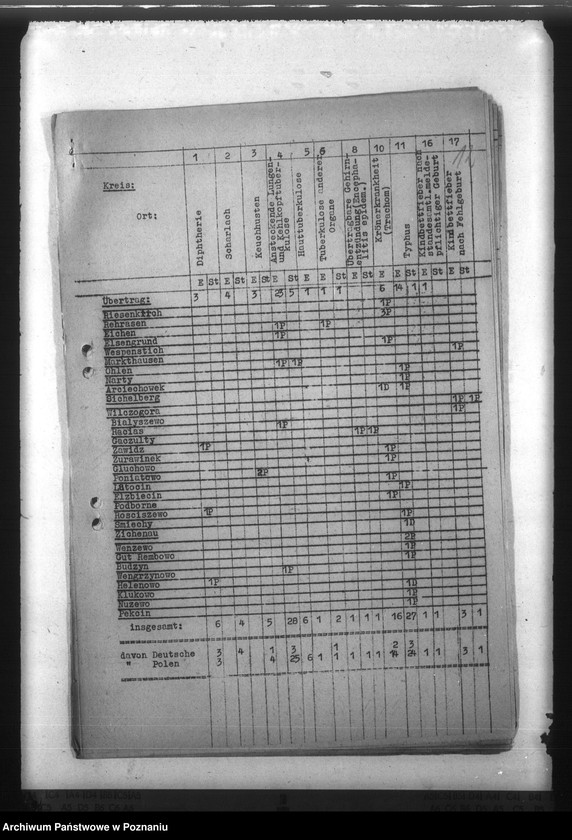 1 2 3 4 5 6 8 10 11 16 17
Kreis:
Ort:
Diphtherie
Scharlach
Keuchhusten
Ansteckende Lungen-
und Kehlkopftuber-
kulose
Hauttuberkulose
Tuberkulose anderer
Organe
Übertragbare Gehirn-
entzündung(encepha-
litis epidem.)
Körnerkrankheit
(Trachom)
Typhus
Kindbettfieber nach
standesamtl.melde-
pflichtiger Geburt
Kindbettfieber
nach Fehlgeburt
E St E St E St E St E St E St E St E E St E St E St
Übertrag: 3 4 3 23 5 1 1 1 6 14 1 1
Riesenkiroh 1P
Rehrasen 1P 1P 3P
Eichen 1P
Eisengrund 1P
Wespenstich 1P
Markthausen 1P 1P
Ohlen 1P
Narty 1P
Arciechowek 1D 1P
Sichelberg 1P 1P
Wilczogora 1P
Bialyszewo 1P
Racias 1P 1P
Gaczulty
Zawidz 1P 1P
Zurawinek 1P
Gluchowo 2P
Poniatowo 1P
Latocin 1P
Elzbiecin 1P
Podborne
Rosciszewo 1P 1P
Smiechy 1D
Zichenau 2P
Wenzewo 1P
Gut Rembowo 1P
Budzyn 1P
Wengrzynowo
Helenowo 1P 1D
Klukowo 1P
Nuzewo 1P
Pekcin
insgesamt: 6 4 5 28 6 1 2 1 1 1 16 27 1 1 3 1
davon Deutsche 3 4 1 3 1 2 3
" Polen 3 4 25 6 1 1 1 1 1 14 24 1 1 3 1
Archiwum Państwowe w Poznaniu